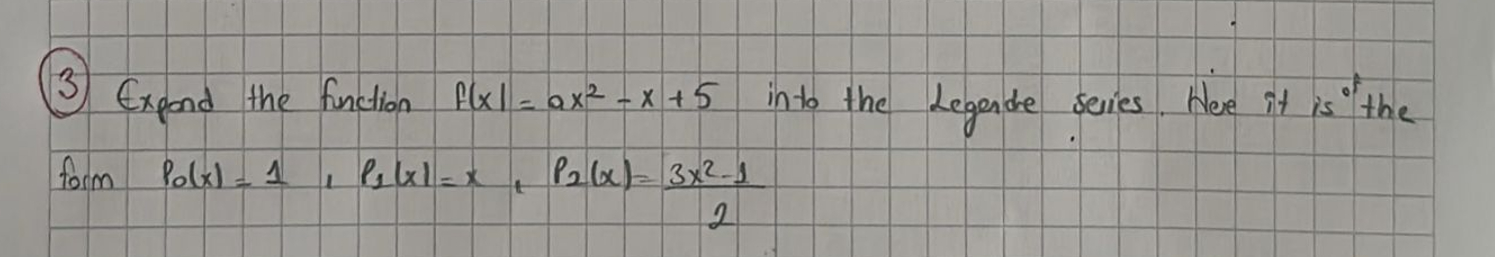 ③ Expand the function f(x) = ax² - x + 5 into the Legendre series. Here it is of the
form P₀(x) = 1 , P₁(x) = x , P₂(x) = 3x² - 1 / 2